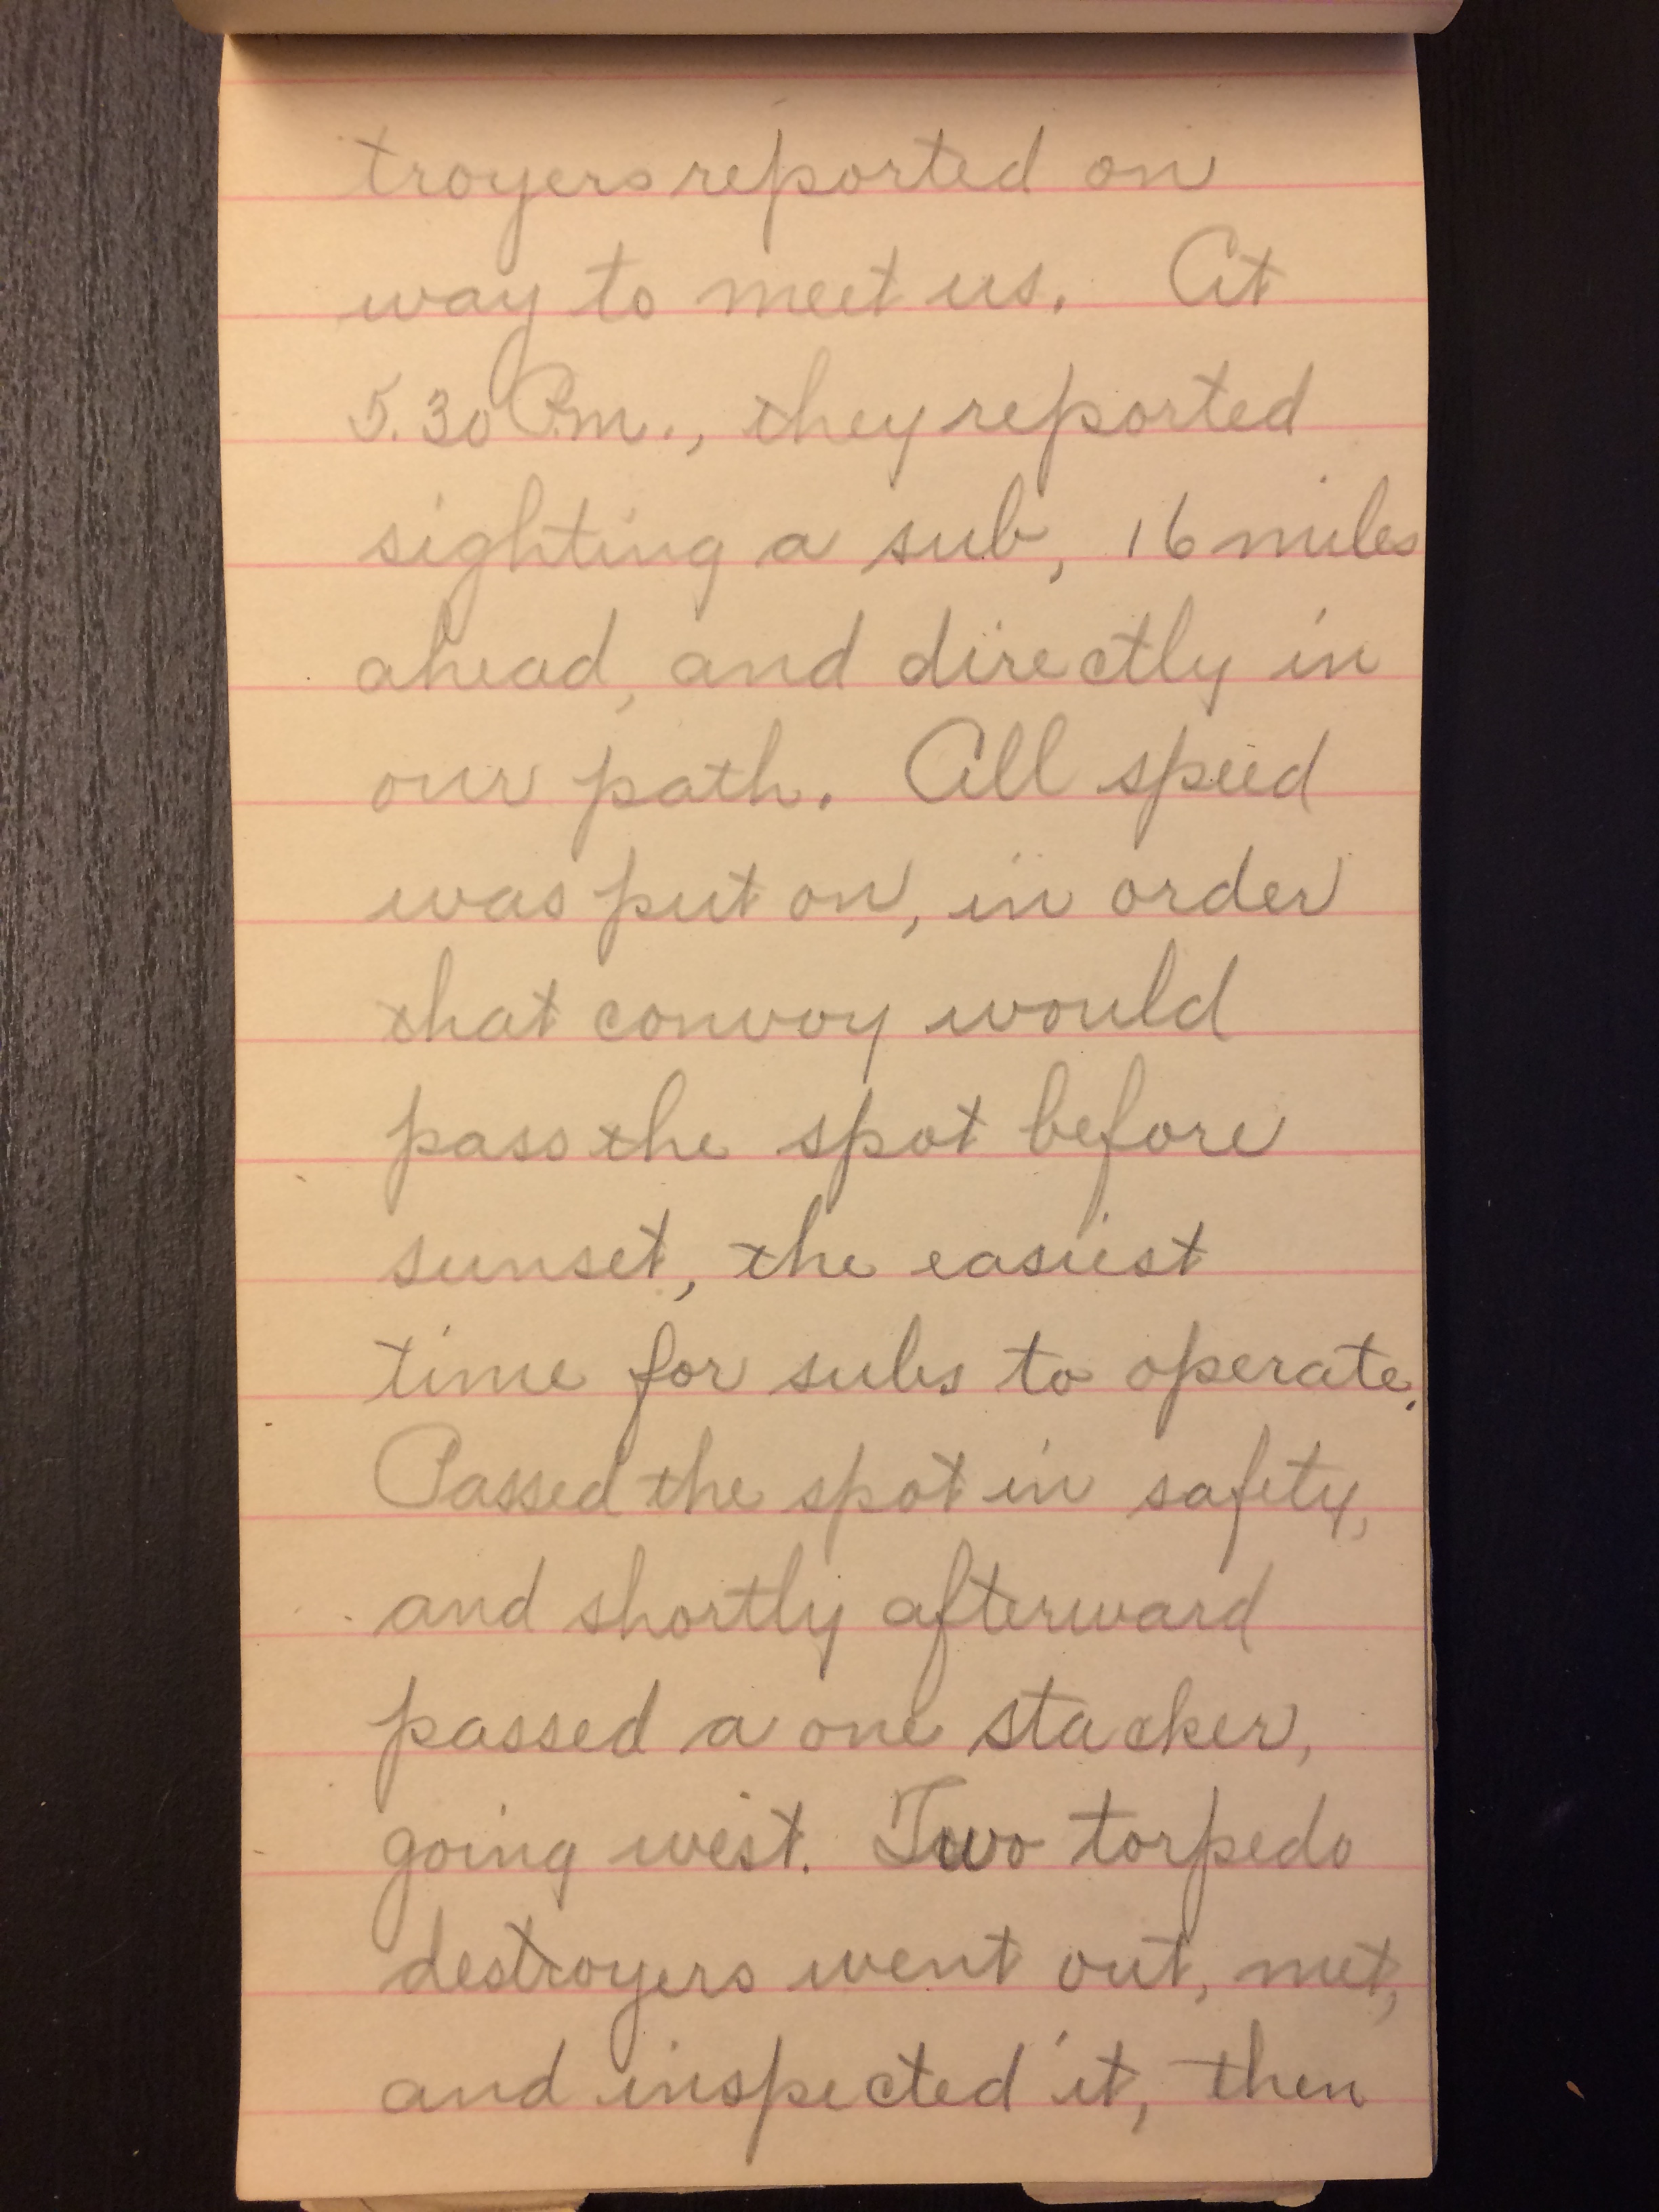 troyers reported on
way to meet us. At
5.30 P.m., they reported
sighting a sub, 16 miles
ahead, and directly in
our path. All speed
was put on, in order
that convoy would
pass the spot before
sunset, the easiest
time for subs to operate.
Passed the spot in safety,
and shortly afterward
passed a one stacker,
going west. Two torpedo
destroyers went out, met,
and inspected it, then